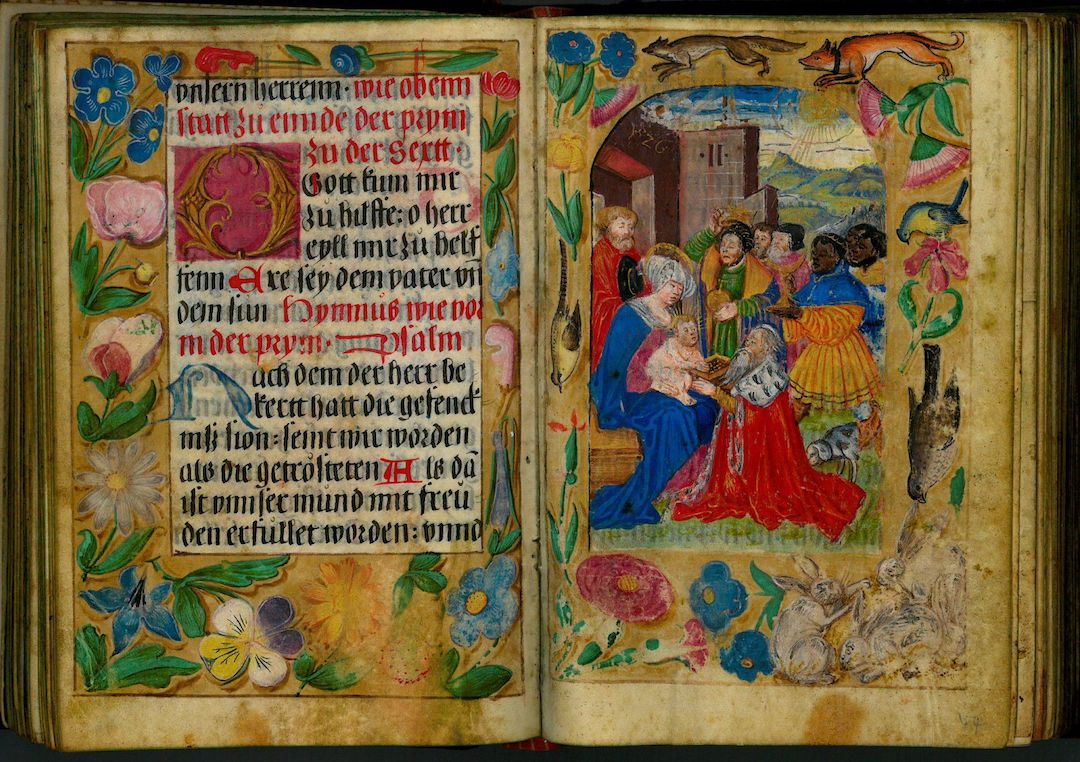 vnsern herrenn · wie obenn
statt zu ennde der prym
zu der Sextt ·
O Gott kum mir
zu hilffe: o herr
eyll mir zu helf
fenn Are sey dem vater vn̄
dem sun Hymnus wie vor
in der prym · Psalm
Nach dem der herr be
kertt hatt die gefenck
niß sion: seint wir worden
als die getrösteten Als dā
ist vnnser mund mit freu
den erfullet worden: vnnd
· II ·